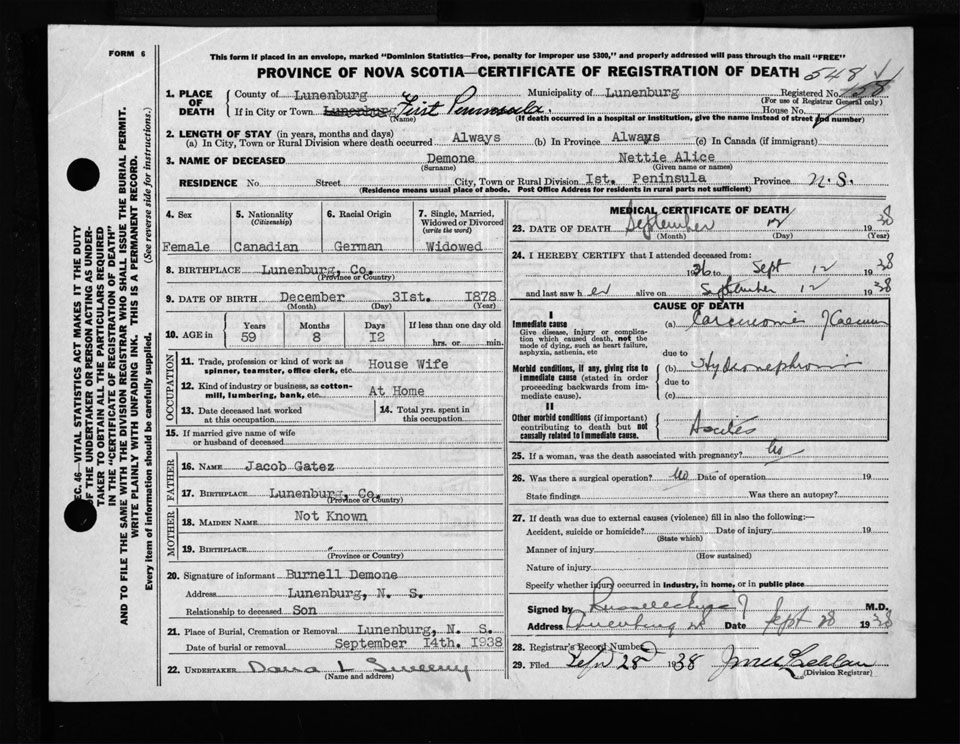 FORM 6
This form if placed in an envelope, marked "Dominion Statistics—Free, penalty for improper use $300," and properly addressed will pass through the mail "FREE"
PROVINCE OF NOVA SCOTIA—CERTIFICATE OF REGISTRATION OF DEATH 548
1. PLACE OF DEATH County of Lunenburg Municipality of Lunenburg Registered No. 158
(For use of Registrar General only)
If in City or Town Lunenburg First Peninsula. House No.
(Name) (If death occurred in a hospital or institution, give the name instead of street and number)
2. LENGTH OF STAY (in years, months and days)
(a) In City, Town or Rural Division where death occurred Always (b) In Province Always (c) In Canada (if immigrant)
3. NAME OF DECEASED Demone Nettie Alice
(Surname) (Given name or names)
RESIDENCE No. Street City, Town or Rural Division Ist. Peninsula Province N.S.
(Residence means usual place of abode. Post Office Address for residents in rural parts not sufficient)
4. Sex 5. Nationality (Citizenship) 6. Racial Origin 7. Single, Married, Widowed or Divorced (write the word)
Female Canadian German Widowed
8. BIRTHPLACE Lunenburg, Co.
(Province or Country)
9. DATE OF BIRTH December 3Ist. 1878
(Month) (Day) (Year)
10. AGE in Years Months Days If less than one day old
59 8 I2 hrs. or min.
OCCUPATION
11. Trade, profession or kind of work as spinner, teamster, office clerk, etc. House Wife
12. Kind of industry or business, as cotton-mill, lumbering, bank, etc. At Home
13. Date deceased last worked at this occupation 14. Total yrs. spent in this occupation
15. If married give name of wife or husband of deceased
FATHER
16. NAME Jacob Gatez
17. BIRTHPLACE Lunenburg, Co.
(Province or Country)
MOTHER
18. MAIDEN NAME Not Known
19. BIRTHPLACE
(Province or Country)
20. Signature of informant Burnell Demone
Address Lunenburg, N. S.
Relationship to deceased Son
21. Place of Burial, Cremation or Removal Lunenburg, N. S.
Date of burial or removal September I4th. I938
22. UNDERTAKER
(Name and address)
MEDICAL CERTIFICATE OF DEATH
23. DATE OF DEATH September 12 38
(Month) (Day) (Year)
24. I HEREBY CERTIFY that I attended deceased from:
1936 to Sept 12 1938
and last saw her alive on September 12 1938
CAUSE OF DEATH
I
Immediate cause
Give disease, injury or complication which caused death, not the mode of dying, such as heart failure, asphyxia, asthenia, etc
(a) Carcinoma
due to
Morbid conditions, if any, giving rise to immediate cause (stated in order proceeding backwards from immediate cause).
(b) Hydronephrosis
due to
(c)
II
Other morbid conditions (if important) contributing to death but not causally related to immediate cause.
Ascites
25. If a woman, was the death associated with pregnancy? No
26. Was there a surgical operation? No Date of operation 19
State findings Was there an autopsy?
27. If death was due to external causes (violence) fill in also the following:—
Accident, suicide or homicide? Date of injury 19
(State which)
Manner of injury
(How sustained)
Nature of injury
Specify whether injury occurred in industry, in home, or in public place
Signed by M.D.
Address Lunenburg NS Date Sept 28 1938
28. Registrar's Record Number
29. Filed Sept 28 1938
(Division Registrar)
SEC. 46—VITAL STATISTICS ACT MAKES IT THE DUTY
OF THE UNDERTAKER OR PERSON ACTING AS UNDER-
TAKER TO OBTAIN ALL THE PARTICULARS REQUIRED
IN THE "CERTIFICATE OF REGISTRATION OF DEATH"
AND TO FILE THE SAME WITH THE DIVISION REGISTRAR WHO SHALL ISSUE THE BURIAL PERMIT.
WRITE PLAINLY WITH UNFADING INK. THIS IS A PERMANENT RECORD.
Every item of information should be carefully supplied. (See reverse side for instructions.)